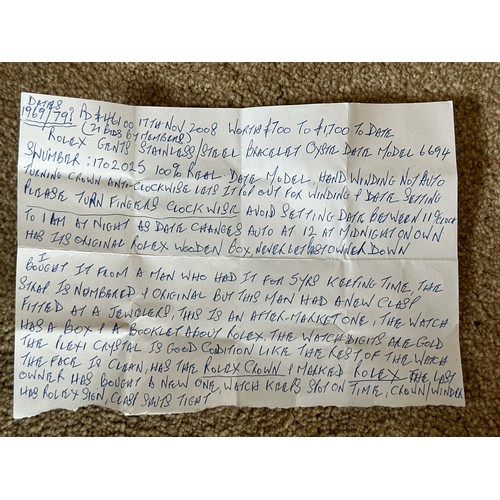 DATES
1969/79? PD £461.00 17TH NOV 2008 WORTH £700 TO £1700 TO DATE
(21 BIDS BY MEMBERS)
ROLEX GENTS STAINLESS/STEEL BRACELET OYSTE DATE MODEL 6694
S/NUMBER: 1702025 100% REAL DATE MODEL, HAND WINDING NOT AUTO
TURNING CROWN ANTI-CLOCKWISE LETS IT POP OUT FOR WINDING & DATE SETTING
PLEASE TURN FINGERS CLOCKWISE AVOID SETTING DATE BETWEEN 11 OCLOCK
TO 1 AM AT NIGHT AS DATE CHANGES AUTO AT 12 AT MIDNIGHT ON OWN
HAS ITS ORIGINAL ROLEX WOODEN BOX, NEVER LET LAST OWNER DOWN
I
BOUGHT IT FROM A MAN WHO HAD IT FOR 5YRS KEEPING TIME, THE
STRAP IS NUMBERED & ORIGINAL BUT THIS MAN HAD A NEW CLASP
FITTED AT A JEWELERS, THIS IS AN AFTER-MARKET ONE, THE WATCH
HAS A BOX & A BOOKLET ABOUT ROLEX, THE WATCH DIGITS ARE GOLD
THE PLEXI CRYSTAL IS GOOD CODITION LIKE THE REST, OF THE WATCH
THE FACE IS CLEAN, HAS THE ROLEX CROWN & MARKED ROLEX THE LAST
OWNER HAS BOUGHT A NEW ONE, WATCH KEEPS SPOT ON TIME, CROWN/WINDER
HAS ROLEX SIGN, CLASP SHUTS TIGHT